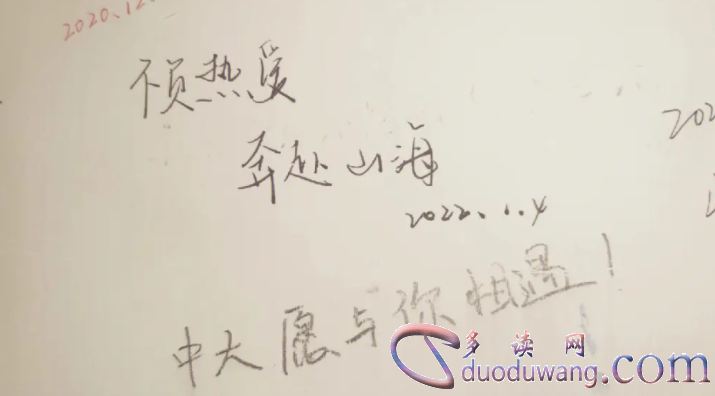 2020.12.
不负热爱
奔赴山海
2022.1.4
202
中大愿与你相遇!
多读网
duoduwang.com